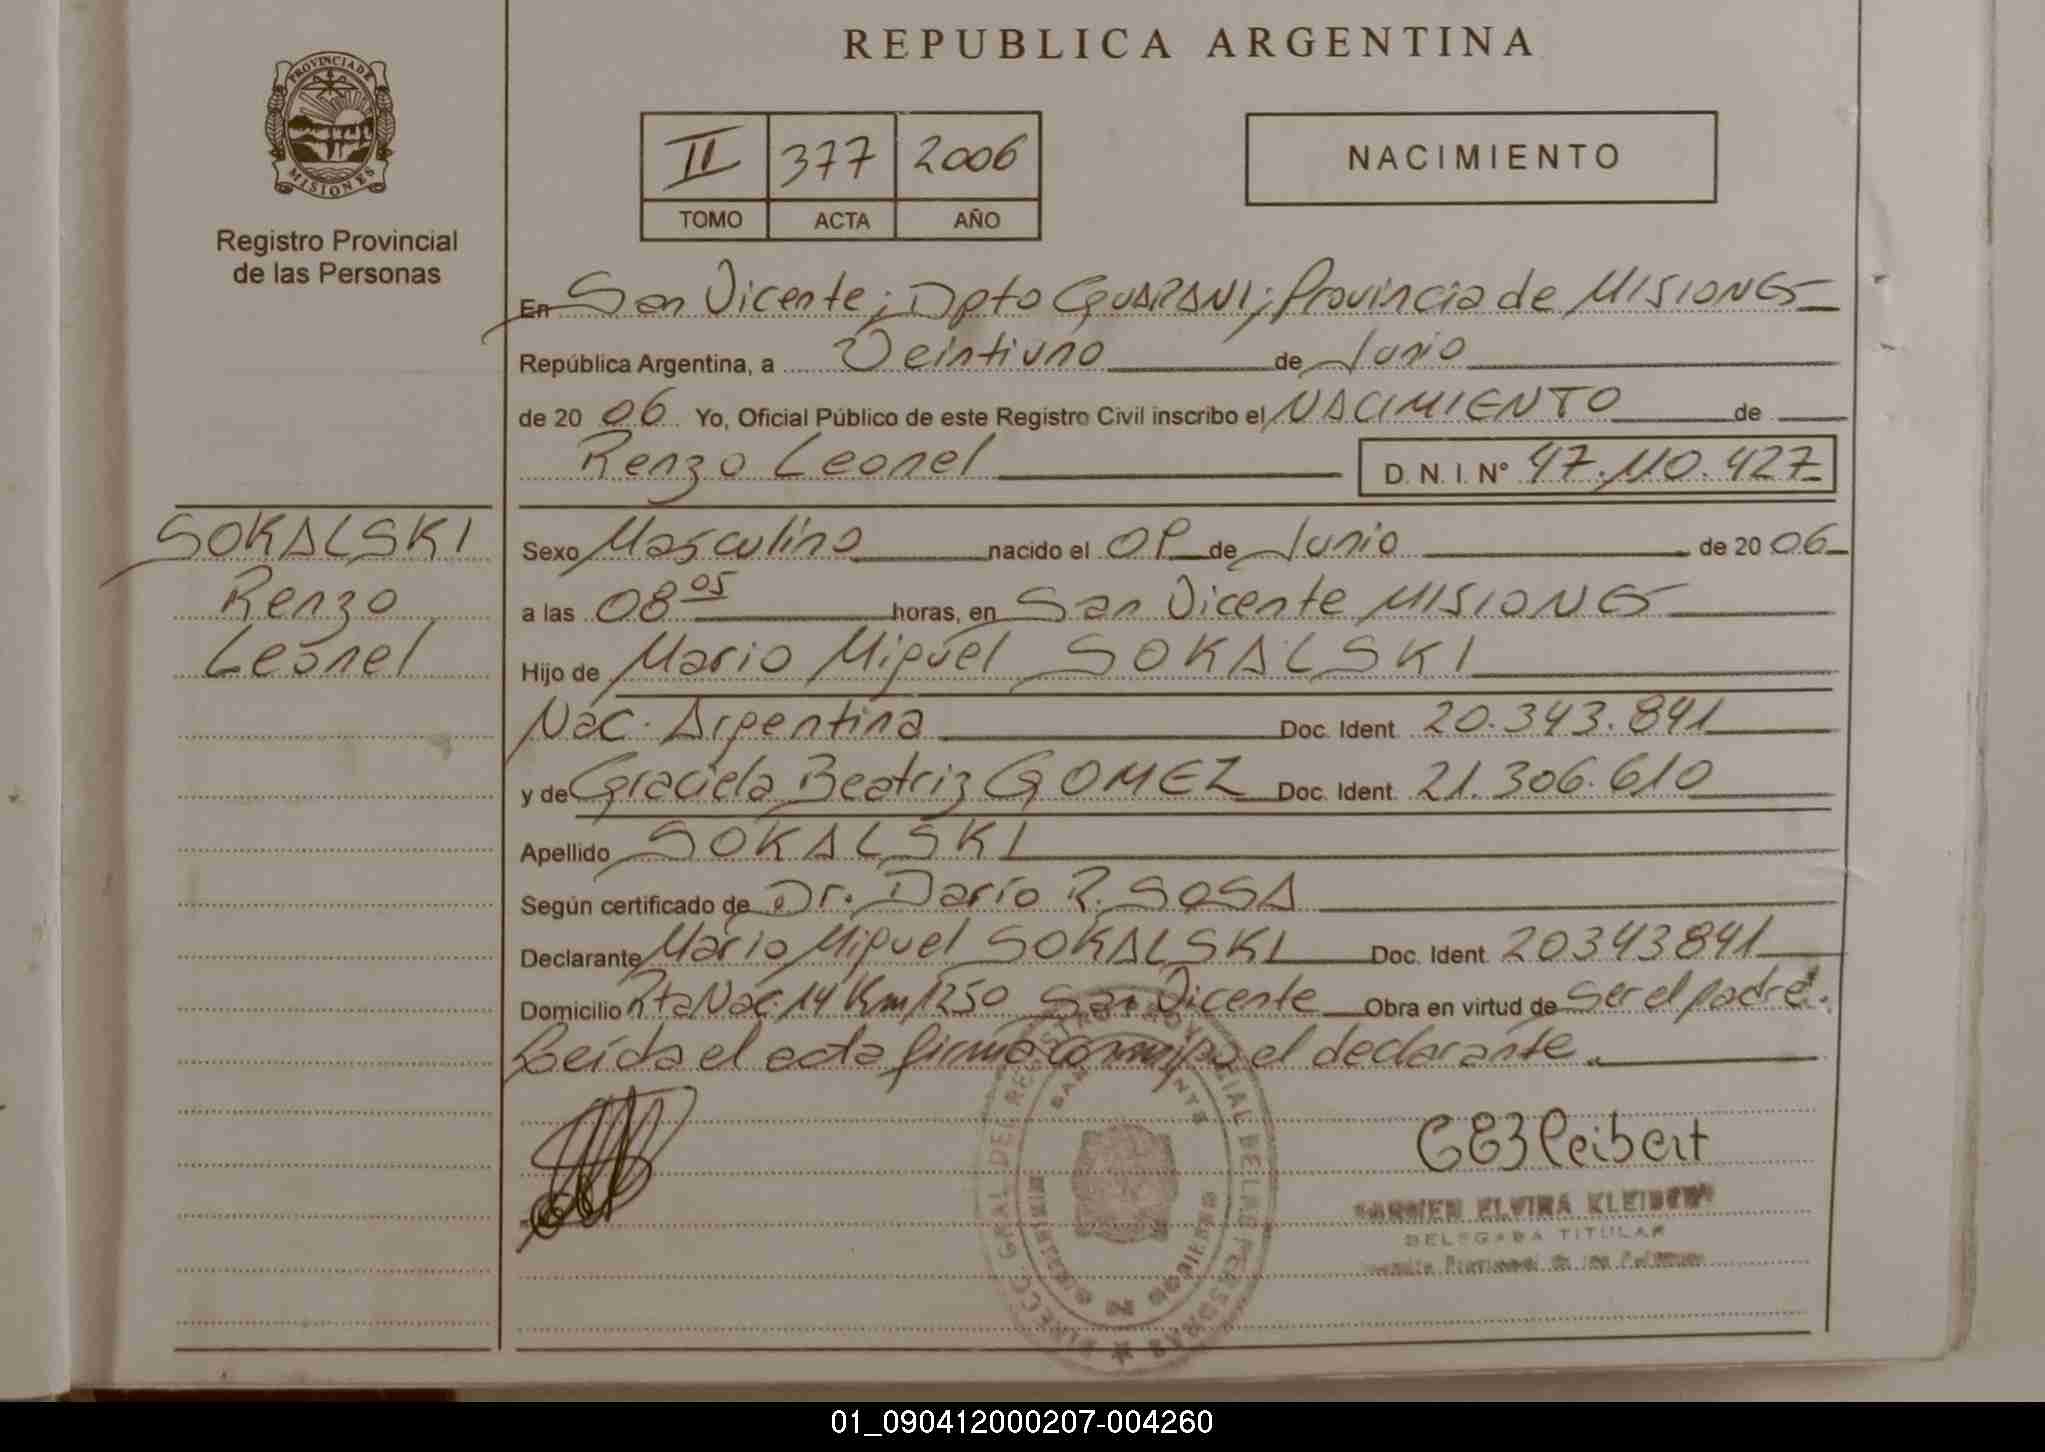 REPUBLICA ARGENTINA
PROVINCIA DE
MISIONES
Registro Provincial
de las Personas
II 377 2006
TOMO ACTA AÑO
NACIMIENTO
En San Vicente; Dpto GUARANI; Provincia de MISIONES
República Argentina, a Veintiuno de Junio
de 20 06 Yo, Oficial Público de este Registro Civil inscribo el NACIMIENTO de
Renzo Leonel D. N. I. Nº 47.110.427
SOKALSKI
Renzo
Leonel
Sexo Masculino nacido el de Junio de 20 06
a las 08 05 horas, en San Vicente MISIONES
Hijo de Mario Miguel SOKALSKI
Nac. Argentina Doc. Ident. 20.343.841
y de Graciela Beatriz GOMEZ Doc. Ident. 21.306.610
Apellido SOKALSKI
Según certificado de Dr. Darío R. SOSA
Declarante Mario Miguel SOKALSKI Doc. Ident. 20343841
Domicilio Rta Nac. 14 Km 1250 San Vicente Obra en virtud de Ser el padre.
Leída el acta firma conmigo el declarante.
DIRECC. GRAL. DEL REGISTRO PROVINCIAL DE LAS PERSONAS
SAN VICENTE
CARMEN ELVIRA KLEIBERT
DELEGADA TITULAR
Registro Provincial de las Personas
01_090412000207-004260